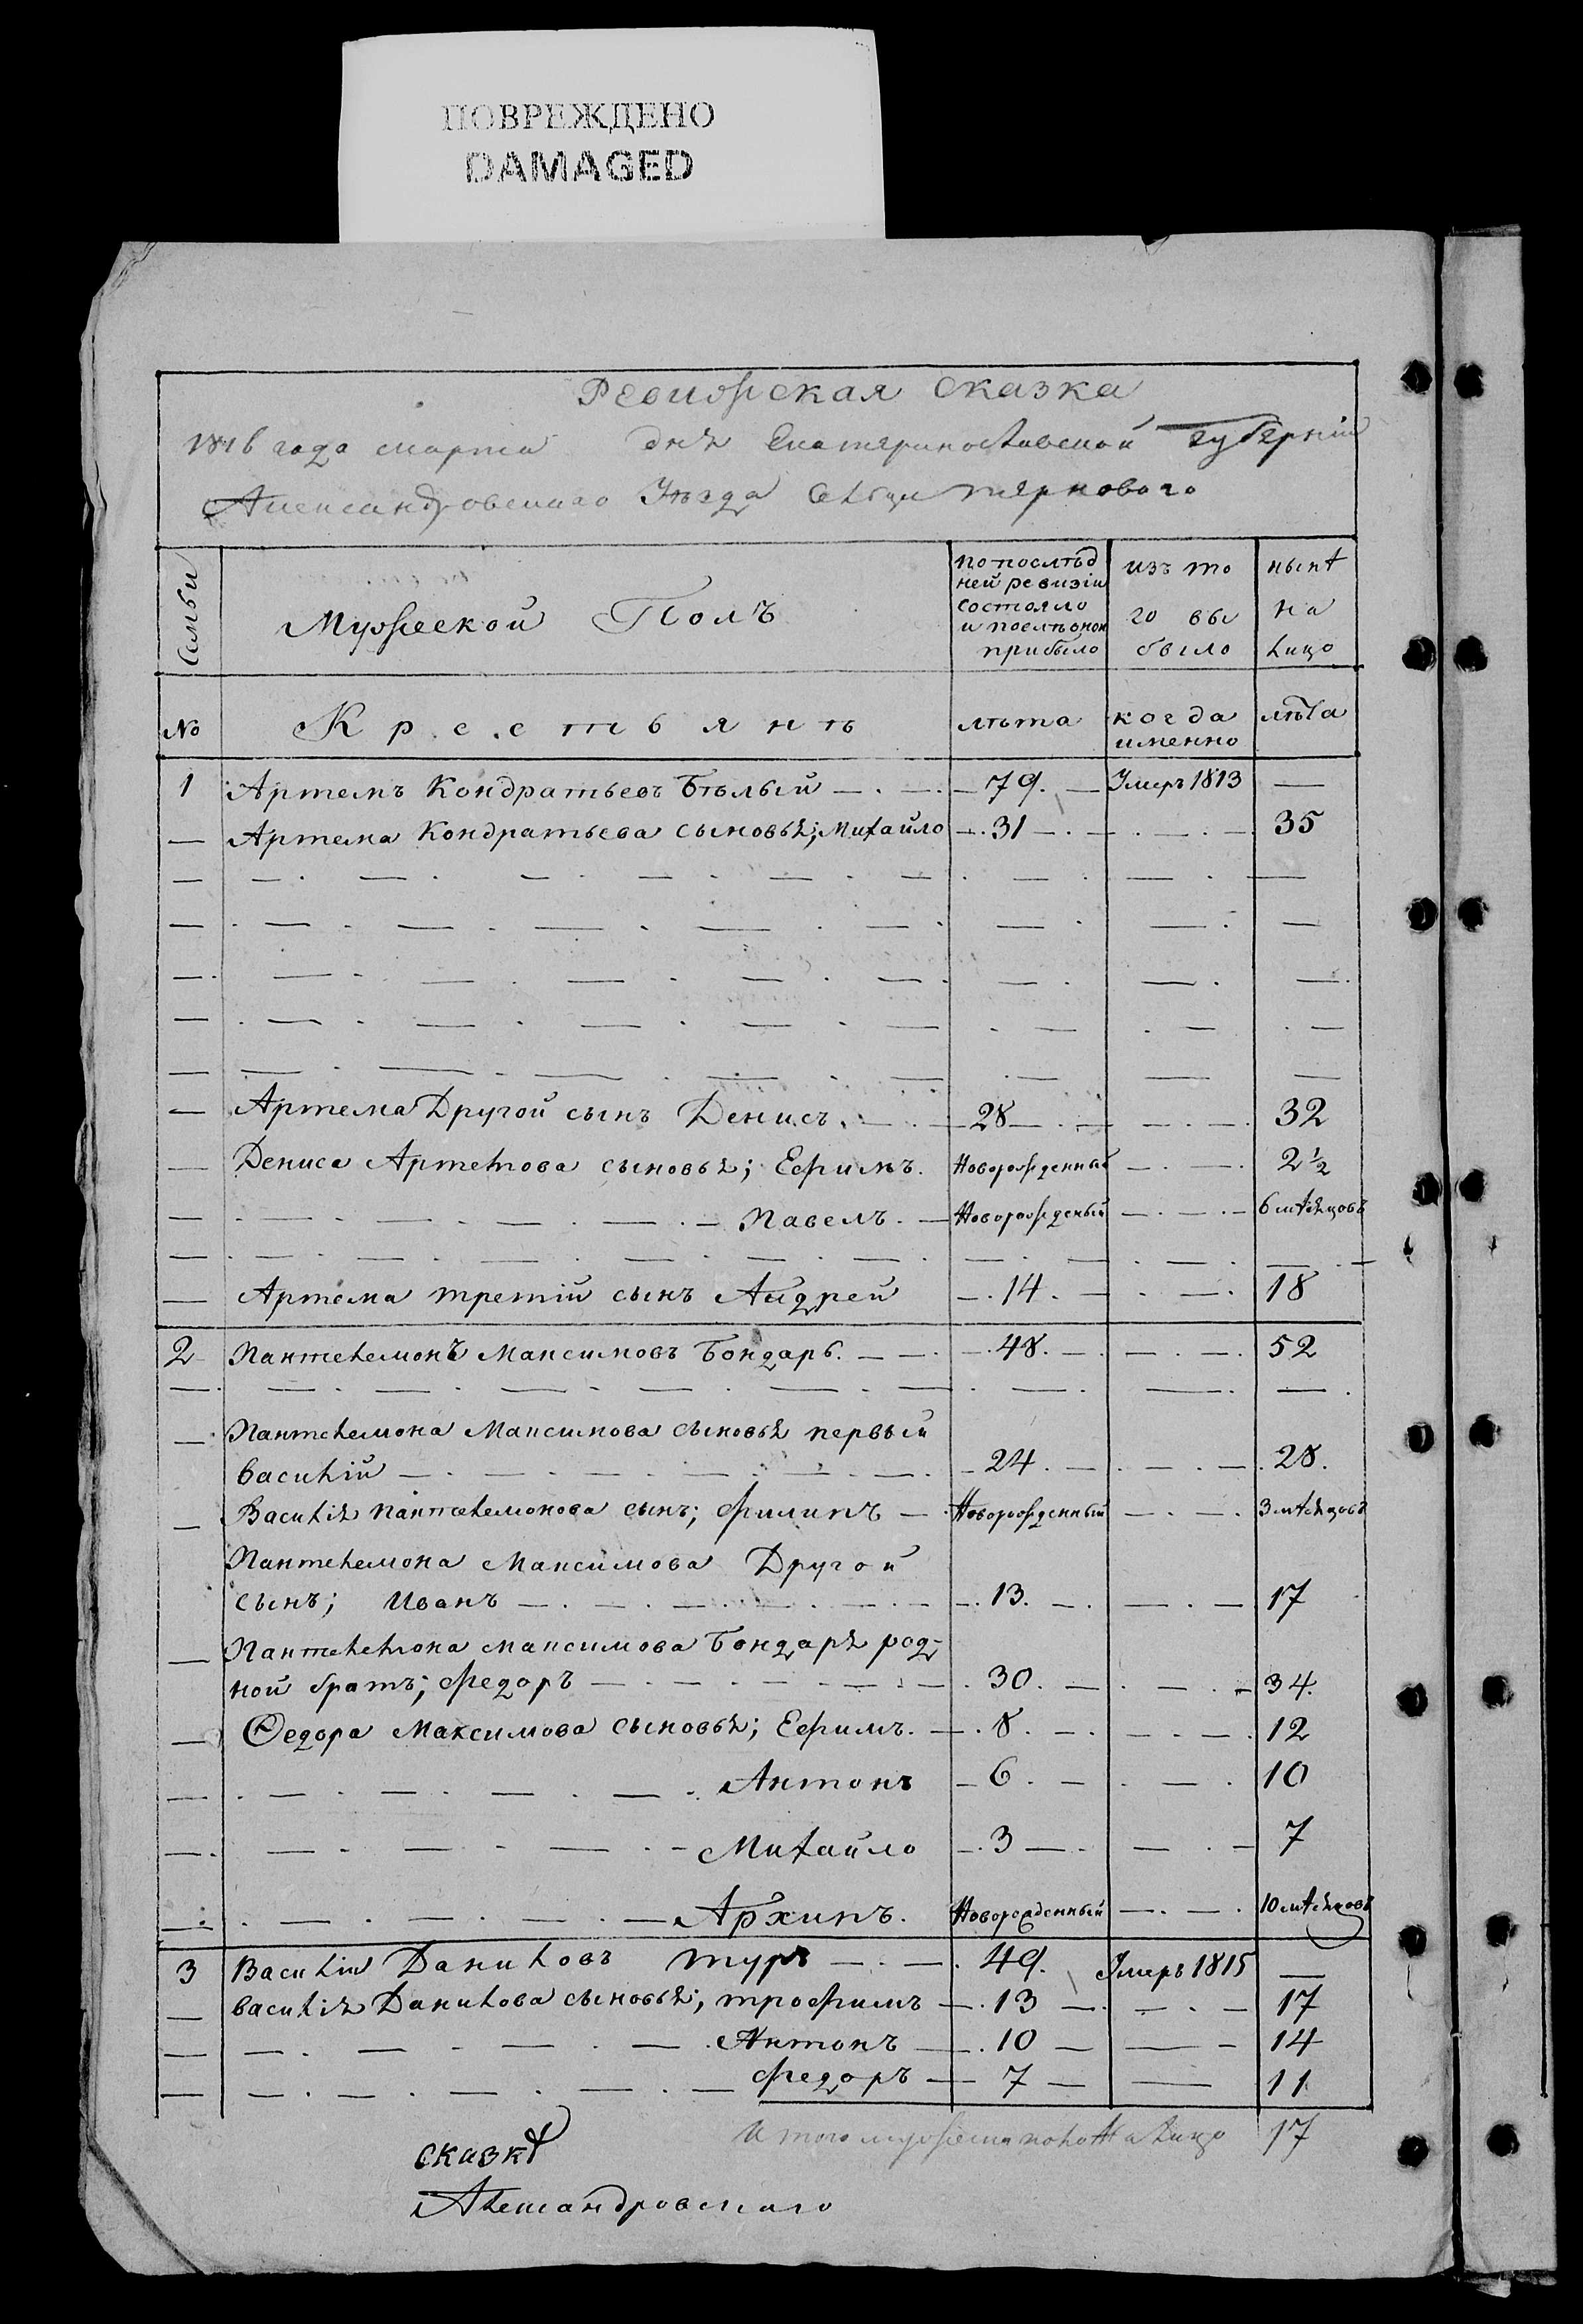 ПОВРЕЖДЕНО
DAMAGED
Ревижская Сказка
1816 года марта дня Екатеринославской губернии
Александровскаго Уезда Сельца тернового
Семьи
Мужеской Полъ
по послѣд
ней ревизіи
состояло
и послѣ оной
прибыло
изъ то
го вы
было
нынѣ
на
лицо
№
Крестьянъ
лѣта
когда
именно
лѣта
1 Артемъ Кондратьевъ Бѣлый 79. Умеръ 1813
Артема Кондратьева сыновья; Михайло 31 35
Артема Другой сынъ Денисъ 28 32
Дениса Артемова сыновья; Ефимъ. Новорожденный 2 ½
Павелъ. Новорожденый 6 мѣсяцовъ
Артема третій сынъ Андрей 14. 18
2 Пантелемонъ Максимовъ Бондарь. 48. 52
Пантелемона Максимова сыновья первый
василій 24. 28.
Василія пантелемонова сынъ; филипъ Новорожденный 3 мѣсяцовъ
Пантелемона Максимова Другой
сынъ; Иванъ 13. 17
Пантелемона максимова Бондаря род-
ной братъ; федоръ 30. 34.
Ѳедора Максимова сыновья; Ефимъ. 8. 12
Антонъ 6. 10
Михайло 3 7
Архипъ. Новорожденный 10 мѣсяцовъ
3 Василій Даниловъ туръ 49. Умеръ 1815
василія Данилова сыновья; трофимъ 13 17
Антонъ 10 14
федоръ 7 11
Итого мужеска пола На лицо 17
сказкѣ
Александровскаго